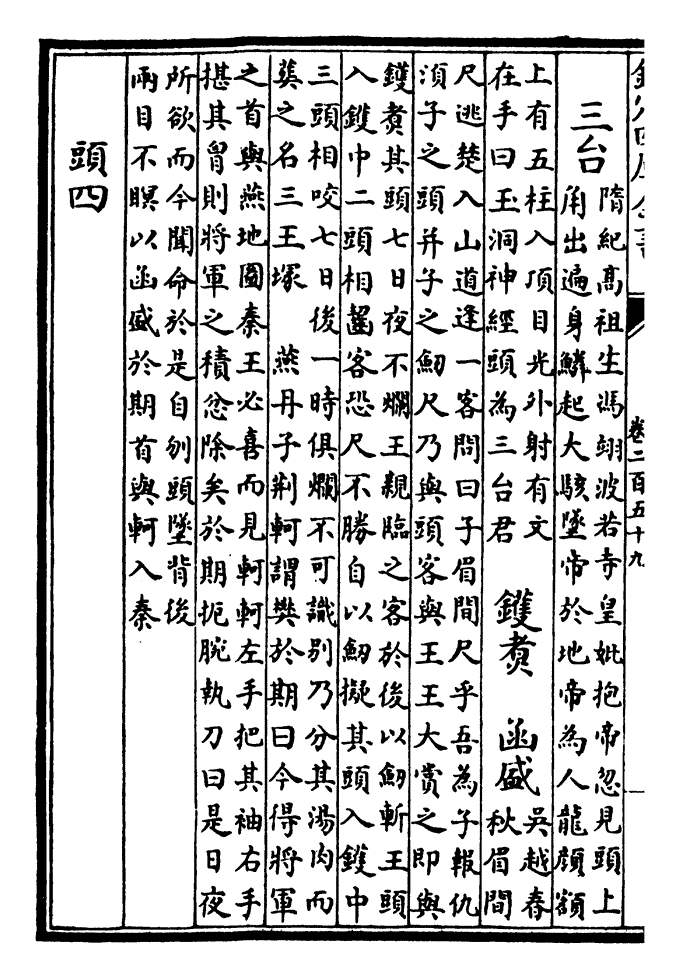 卷二百五十九
三台
隋紀髙祖生馮翊波若寺皇妣抱帝忽見頭上
角出遍身鱗起大駭墜帝於地帝為人龍顔額
上有五柱入頂目光外射有文
在手曰玉洞神經頭為三台君
鑊煑 函盛
吳越春
秋眉間
尺逃楚入山道逢一客問曰子眉間尺乎吾為子報仇
湏子之頭并子之劒尺乃與頭客與王王大賞之即與
鑊煑其頭七日夜不爛王親臨之客於後以劒斬王頭
入鑊中二頭相齧客恐尺不勝自以劒擬其頭入鑊中
三頭相咬七日後一時俱爛不可識别乃分其湯肉而
葬之名三王塚 燕丹子荆軻謂樊於期曰今得將軍
之首與燕地圖秦王必喜而見軻軻左手把其袖右手
揕其胷則將軍之積忿除矣於期扼腕執刀曰是日夜
所欲而今聞命於是自刎頭墜背後
兩目不瞑以函盛於期首與軻入秦
頭四